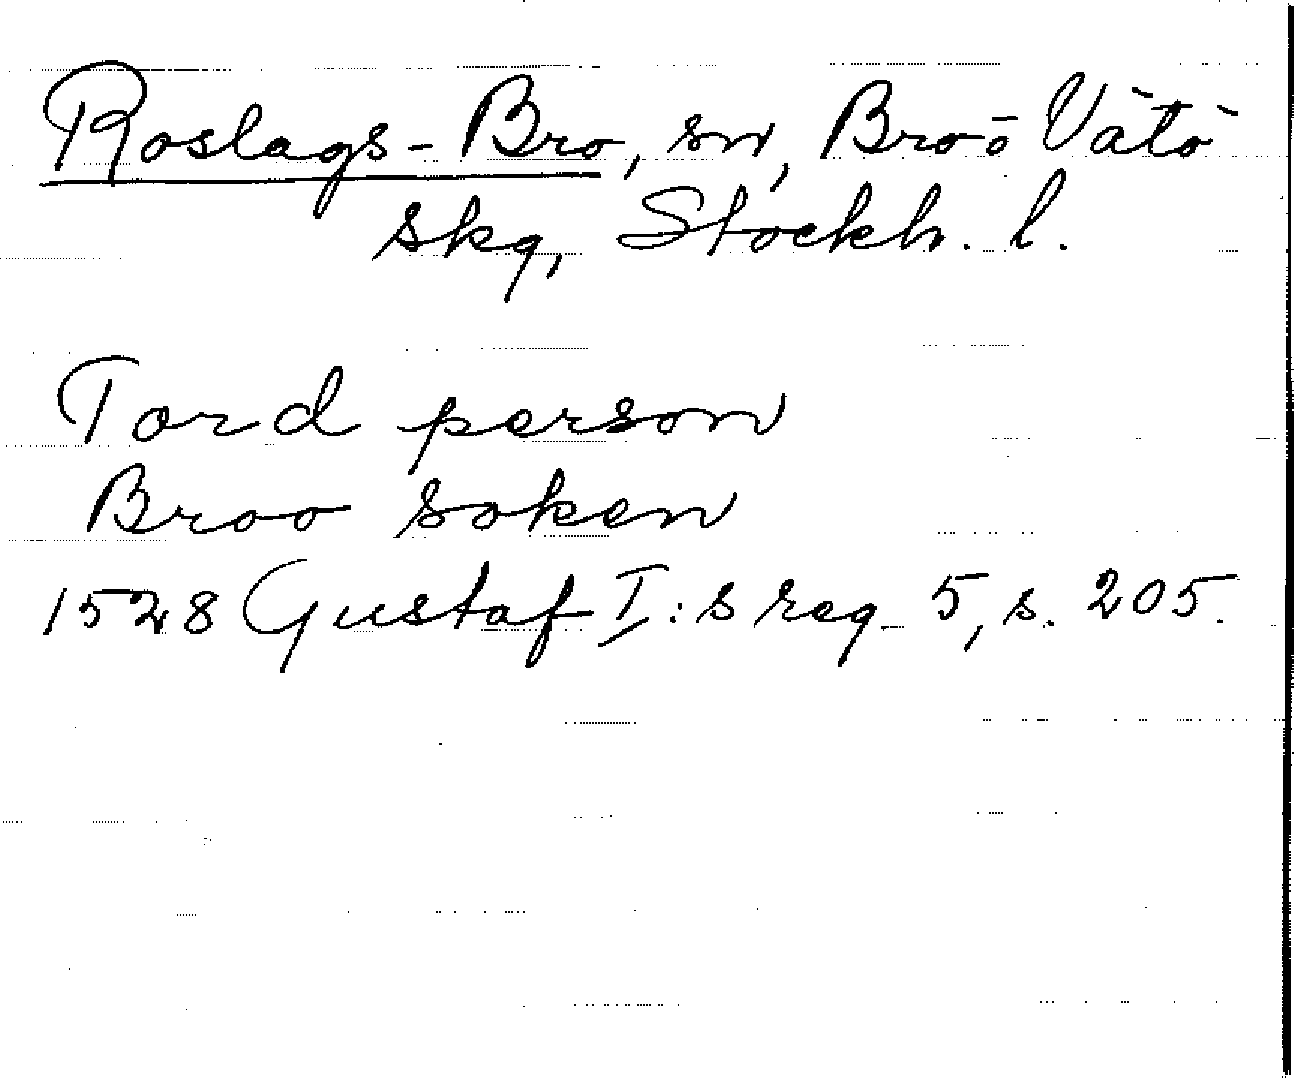 Roslags-Bro, sn, Bro o Vätö
skg, Stockh. l.
Tord person
Broo soken
1528 Gustaf I:s reg. 5, s. 205.